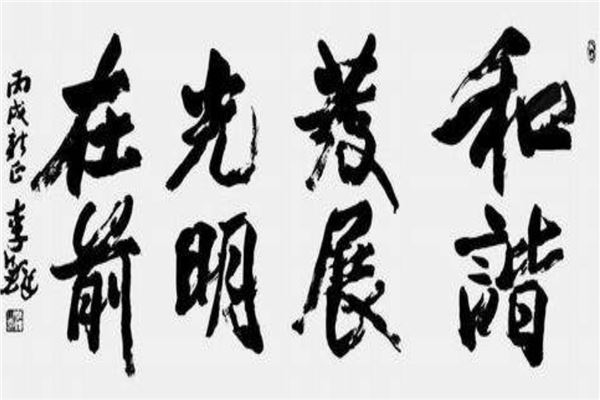 和諧
發展
光明
在前
丙戌新正
李鐸